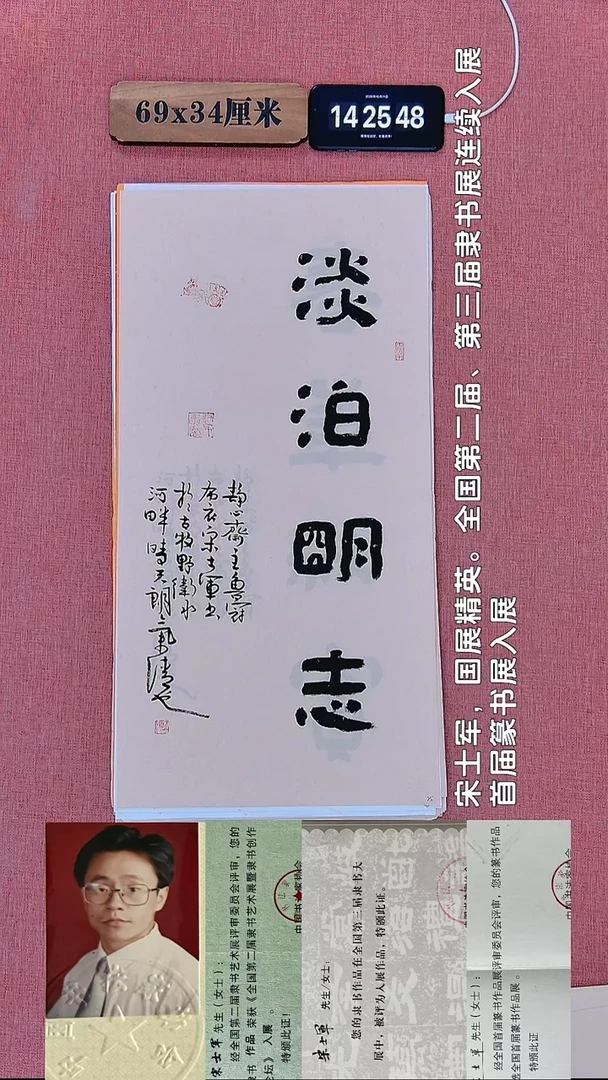 69x34厘米
14 25 48
淡泊明志
静心斋主鱼窝
布衣宋士军书
于古牧野卫水
河畔时天朗气清也
宋士军，国展精英。全国第二届、第三届隶书展连续入展
首届篆书展入展
宋士军 先生（女士）：
经全国第二届隶书艺术展评审委员会评审，您的
隶书 作品 荣获《全国第二届隶书艺术展暨隶书创作
论坛》入展 。
特颁此证！
宋士军 先生/女士：
您的隶书作品在全国第三届隶书大
展中，被评为入展作品，特颁此证。
士军 先生（女士）：
经全国首届篆书作品展评审委员会评审，您的篆书作品
选全国首届篆书作品展。
特颁此证